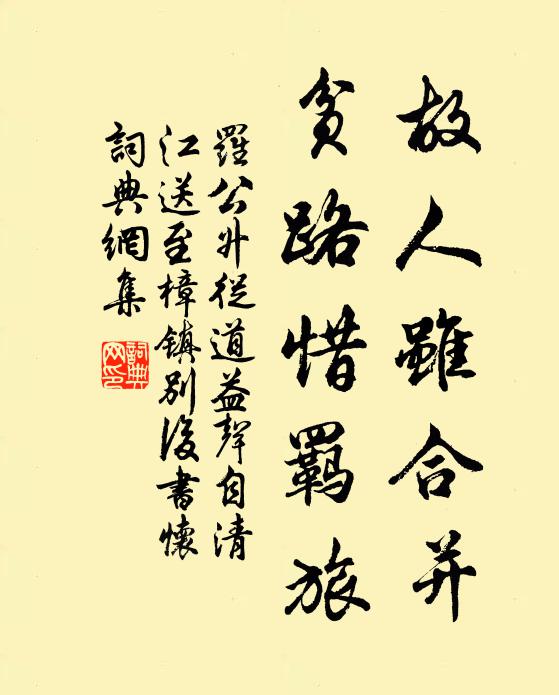 故人雖合并
貧路惜羈旅
羅公升從道益聲自清
江送至樟鎮別後書懷
詞典網集
詞典
网印